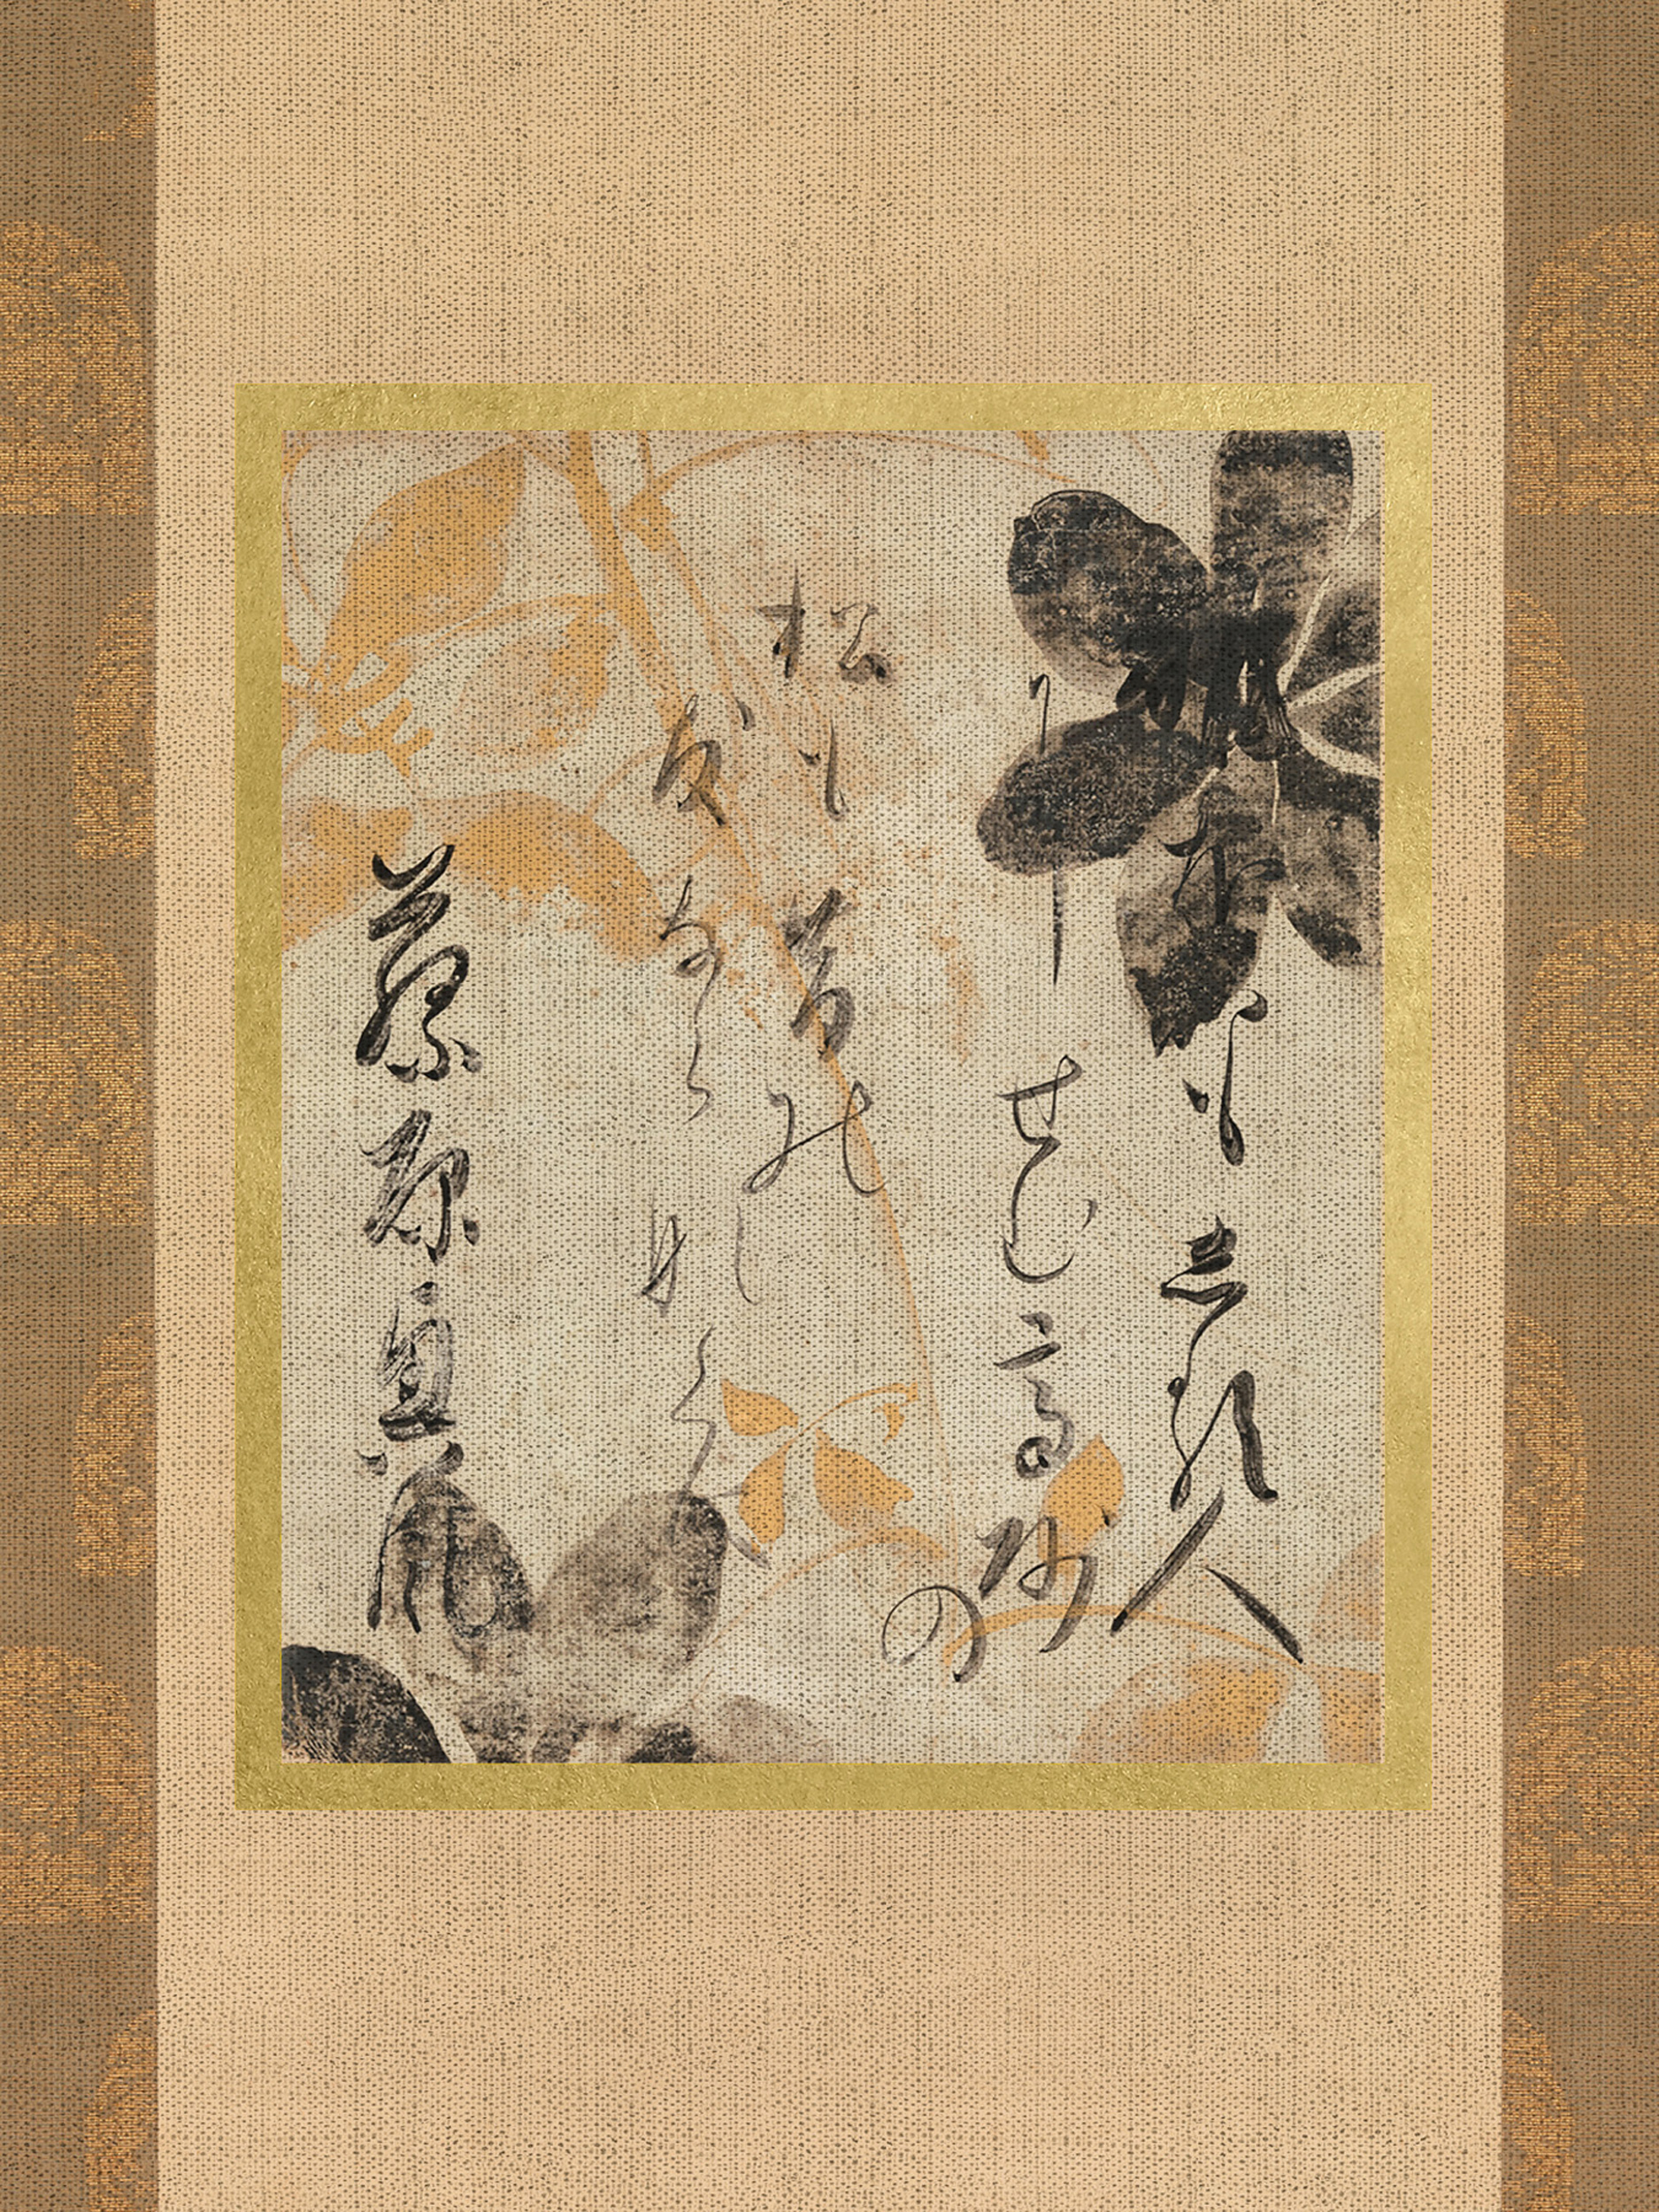 も志る人
にせむ高砂の
松も昔の
友ならなくに
藤原興風